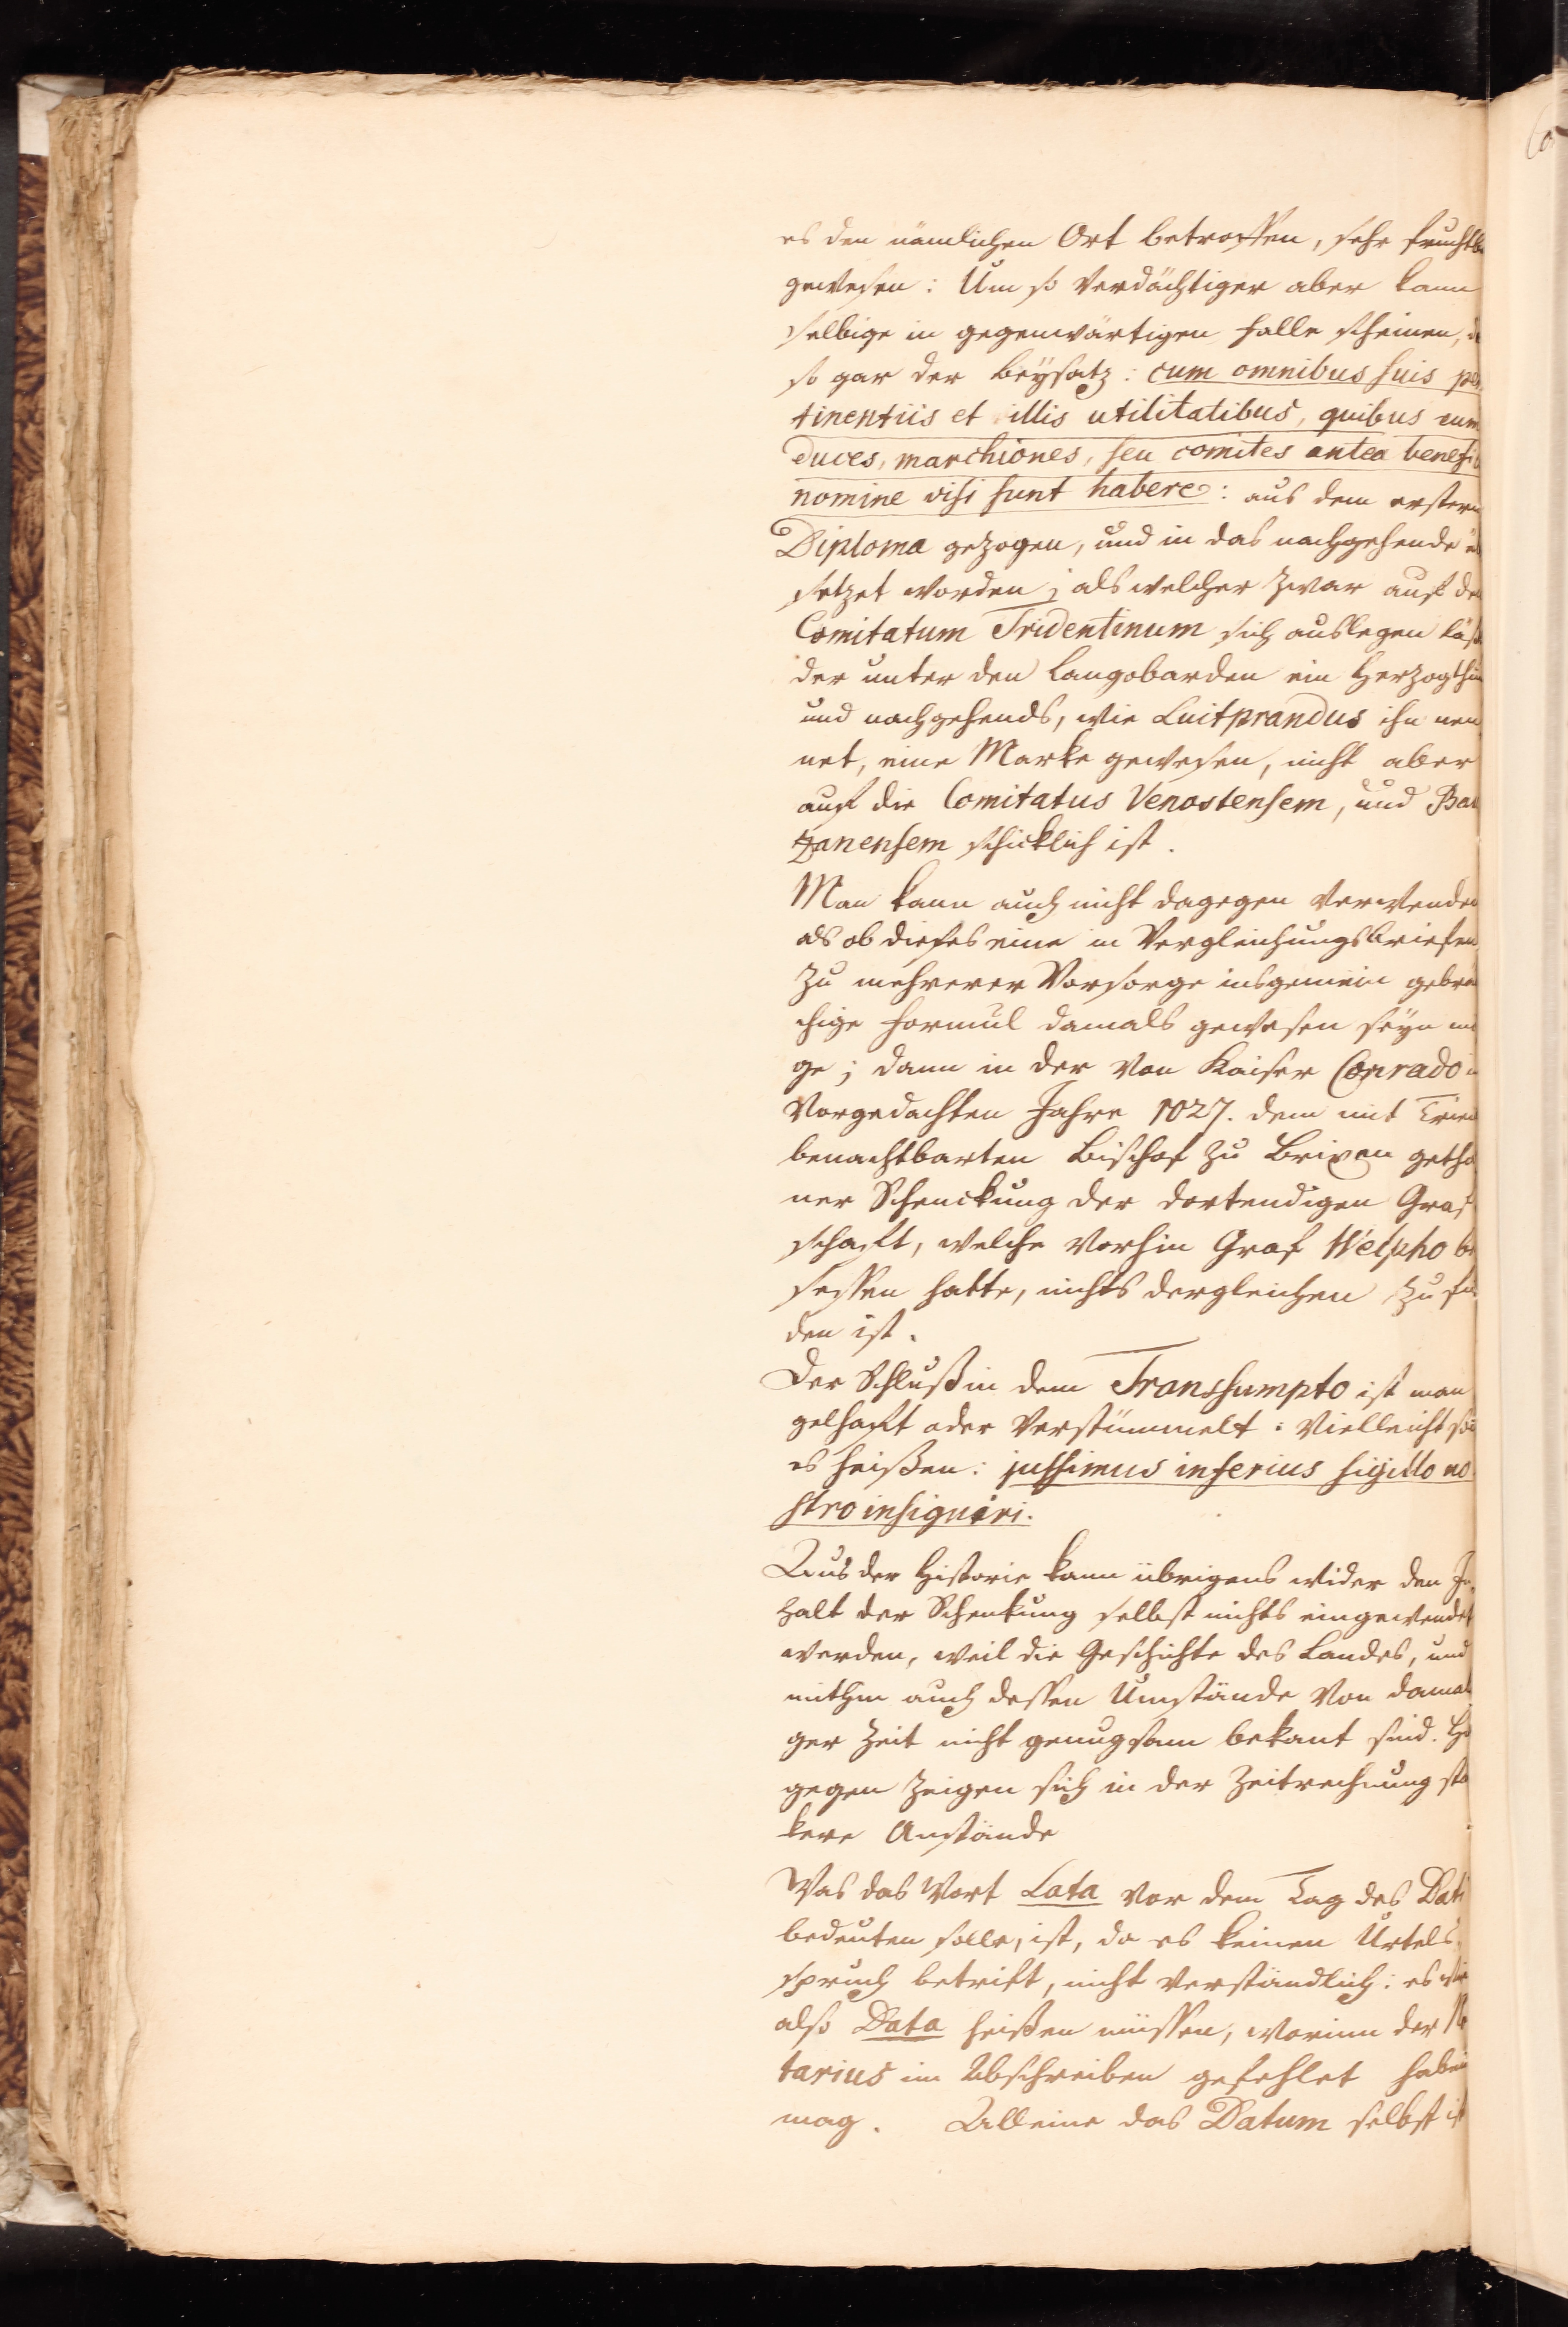 es den nämlichen Ort betroffen, sehr fruchtb
gewesen: Um so verdächtiger aber kann
selbige in gegenwärtigen Falle scheinen, d
so gar der Beysatz: cum omnibus suis per
tinentiis et illis utilitatibus, quibus eum
duces, marchiones, seu comites antea benefi
nomine visi sunt habere: aus dem erstern
Diploma gezogen, und in das nachgehende ü
setzet worden; als welcher zwar auf de
Comitatum Tridentinum sich auslegen läs
der unter den Langobarden ein Herzogthu
und nachgehends, wie Luitprandus ihn nen
net, eine Marke gewesen, nicht aber
auf die Comitatus Venostensem, und Bau
zanensem schicklich ist.
Man kann auch nicht dagegen verwenden
als ob dieses eine in Vergleichungsbriefen
zu mehrerer Vorsorge insgemein gebräu
chige Formul damals gewesen seyn mö
ge; dann in der von Kaiser Conrado in
vorgedachten Jahre 1027. dem mit Trien
benachtbarten Bischof zu Brixen getha
ner Schenckung der dortendigen Graf
schaft, welche vorhin Graf Welpho be
sessen hatte, nichts dergleichen zu fin
den ist.
Der Schluß in dem Transsumpto ist man
gelhaft oder verstümmelt: Vielleicht sol
es heißen: jussimus inferius sigillo no
stro insigniri.
Aus der Historie kann übrigens wider den In
halt der Schenkung selbst nichts eingewendet
werden, weil die Geschichte des Landes, und
mithin auch dessen Umstände von damali
ger Zeit nicht genugsam bekant sind. Hi
gegen zeigen sich in der Zeitrechnung stä
kere Anstände
Was das Wort Lata vor dem Tag des Dati
bedeuten solle, ist, da es keinen Urtels
spruch betrift, nicht verständlich: es wir
also Data heißen müssen, worinn der No
tarius im Abschreiben gefehlet haben
mag. Alleine das Datum selbst ist